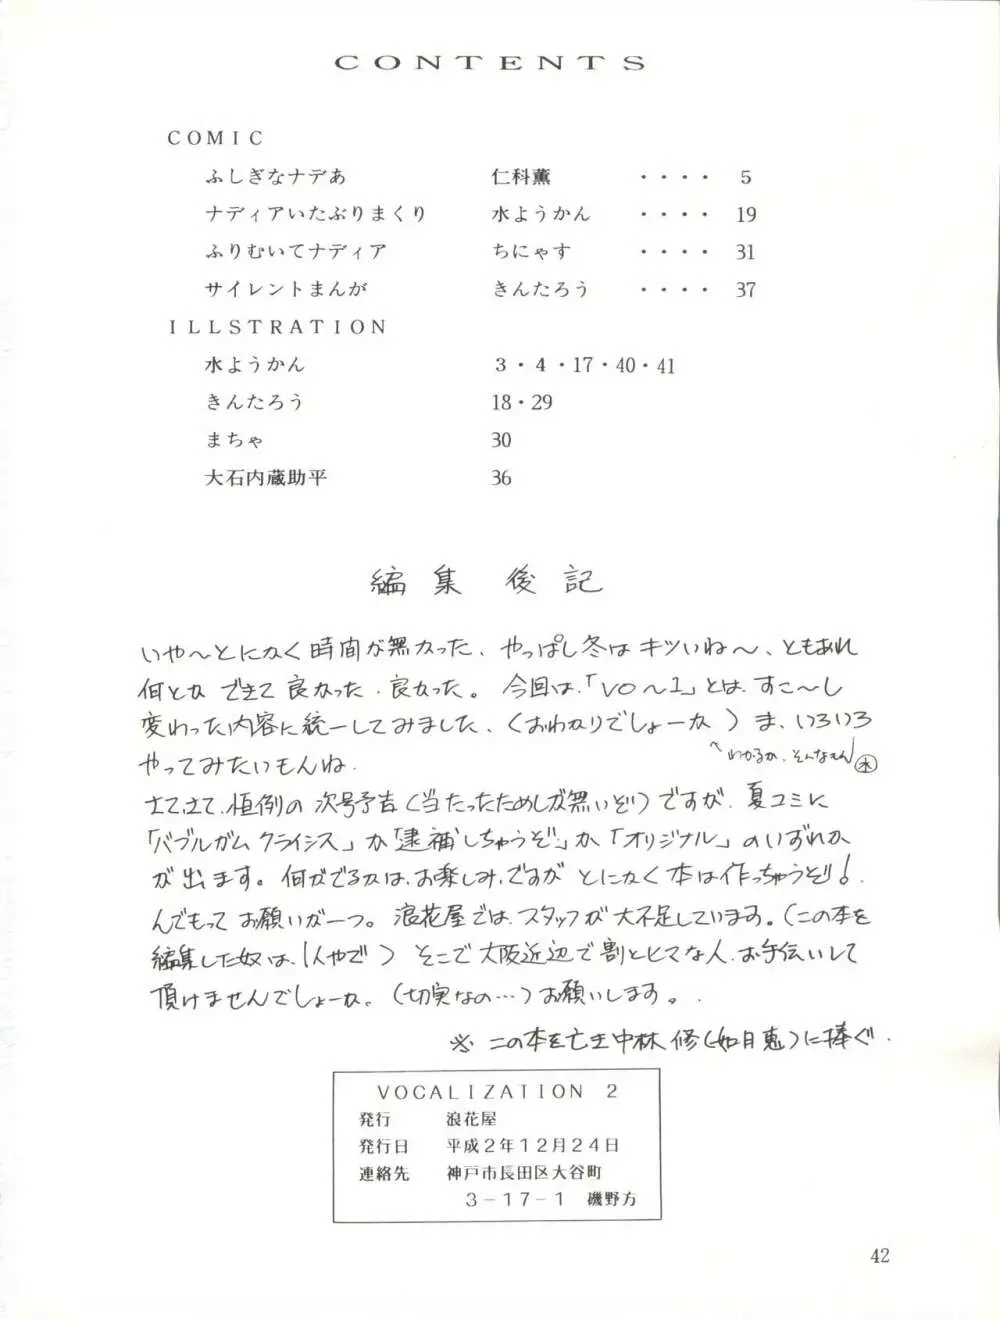 CONTENTS
COMIC
ふしぎなナデあ 仁科薫 ・・・・ 5
ナディアいたぶりまくり 水ようかん ・・・・ 19
ふりむいてナディア ちにゃす ・・・・ 31
サイレントまんが きんたろう ・・・・ 37
ILLSTRATION
水ようかん 3・4・17・40・41
きんたろう 18・29
まちゃ 30
大石内蔵助平 36
編集 後記
いや〜とにかく時間が無かった、やっぱし冬はキツいね〜、ともあれ
何とか できて 良かった、良かった。今回は、「VO〜1」とは、すこ〜し
変わった内容に統一してみました、(おわかりでしょーか)ま、いろいろ
へわかるか、そんなもん 水
やってみたいもんね、
さて、さて、恒例の次号予告(当たったためしが無いぞ!)ですが、夏コミに
「バブルガムクライシス」か「逮捕しちゃうぞ」か「オリジナル」のいずれか
が出ます。何がでるかは、お楽しみ、ですが とにかく本は作っちゃうぞ!
んでもって お願いが一つ。浪花屋では、スタッフが大不足しています。(この本を
編集した奴は、1人やで)そこで大阪近辺で割とヒマな人、お手伝いして
頂けませんでしょーか。(切実なの…)お願いします。
※この本を亡き中林 修(如月 恵)に捧ぐ.
VOCALIZATION 2
発行 浪花屋
発行日 平成2年12月24日
連絡先 神戸市長田区大谷町
3-17-1 磯野方
42